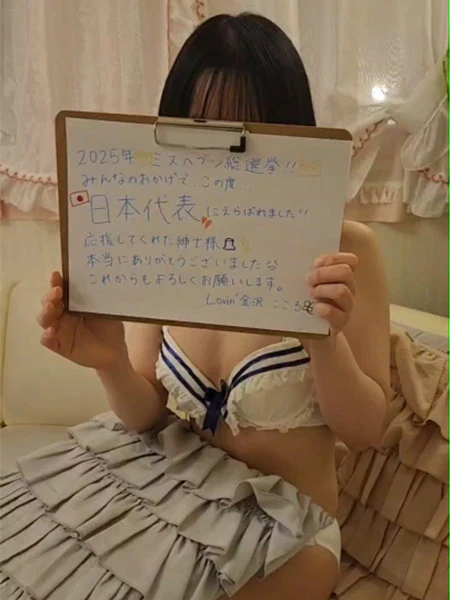 2025年 ミスヘブン総選挙!!
みんなのおかげで、この度...
日本代表にえらばれました!!
応援してくれた紳士様
本当にありがとうございました
これからもよろしくお願いします。
Lovin'金沢 こころ